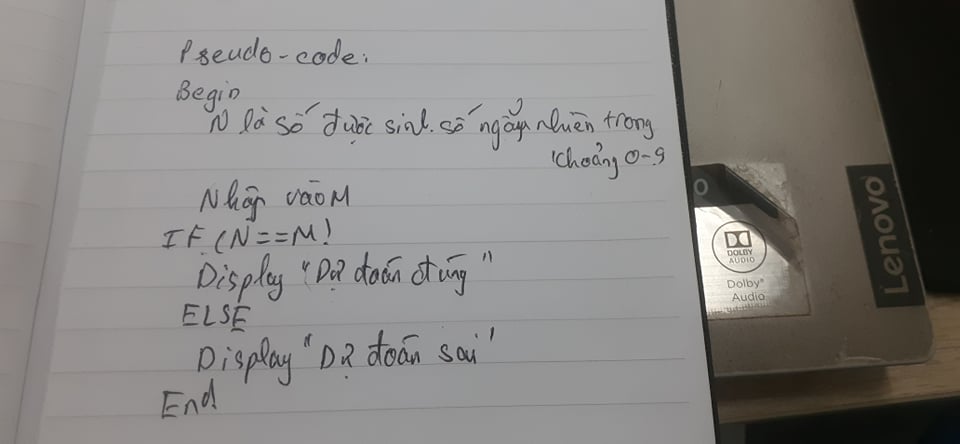 Pseudo-code:
Begin
N là số được sinh số ngẫu nhiên trong
khoảng 0-9
Nhập vào M
IF (N==M)
Display "Dự đoán đúng"
ELSE
Display "Dự đoán sai"
End
DOLBY
AUDIO
Dolby®
Audio
Lenovo